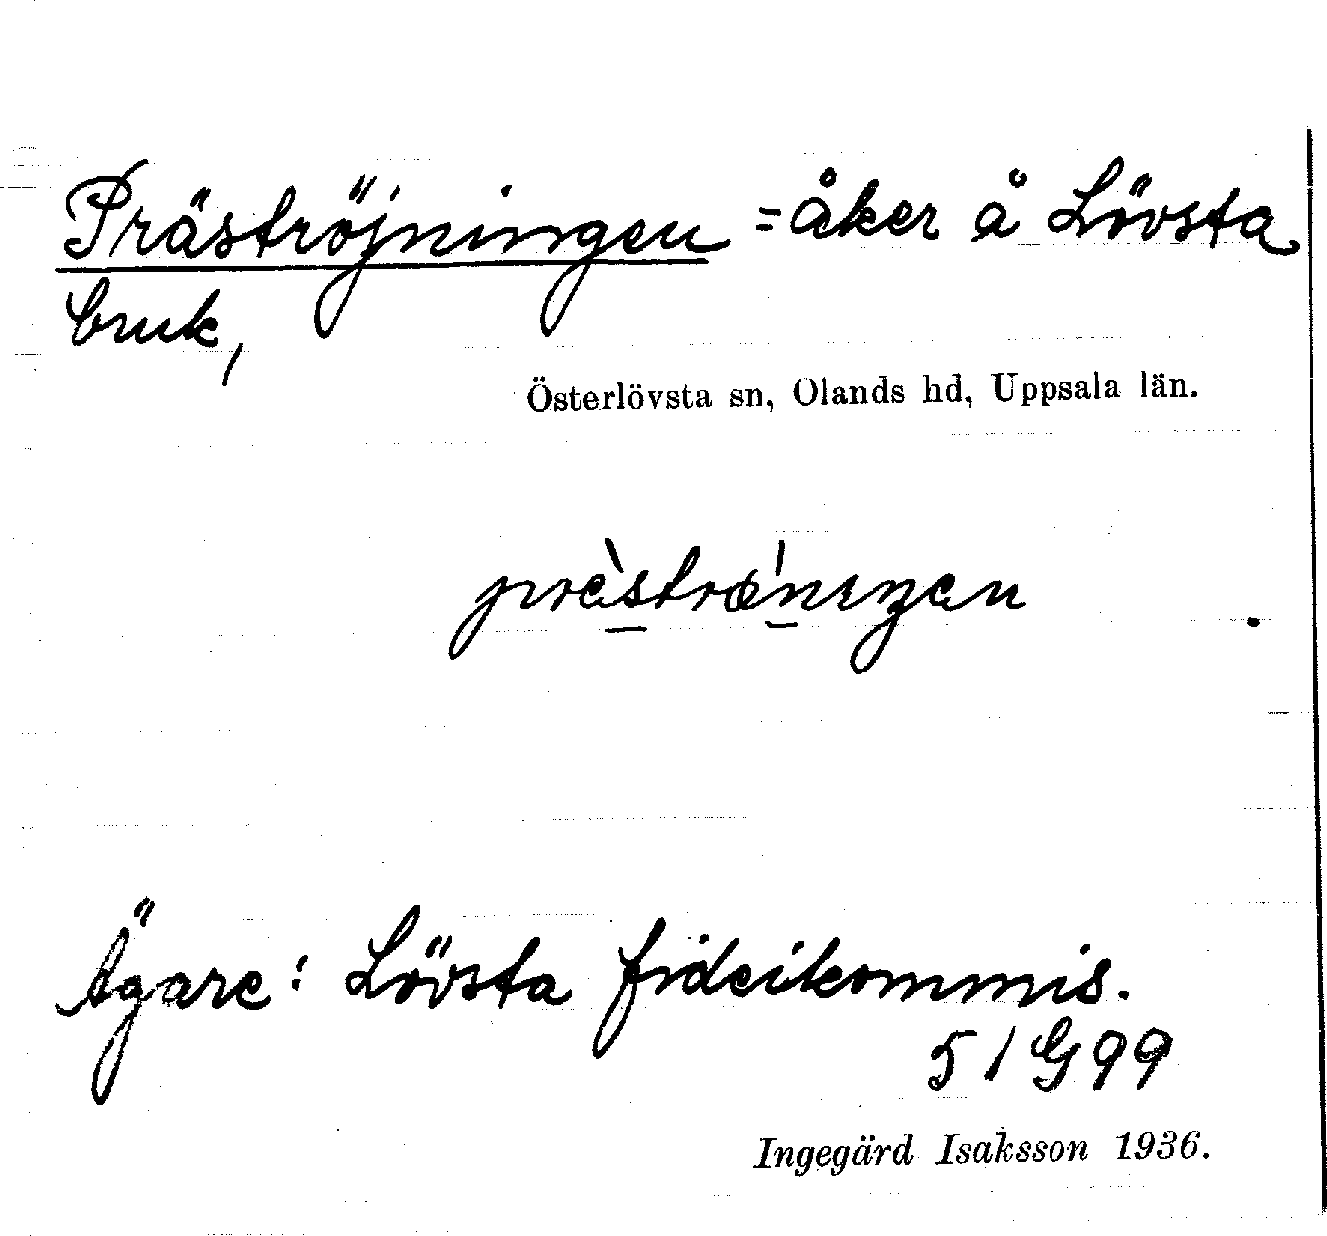 Präströjningen = åker å Lövsta
bruk,
Österlövsta sn, Olands hd, Uppsala län.
Ägare: Lövsta fideikommis.
51G99
Ingegärd Isaksson 1936.